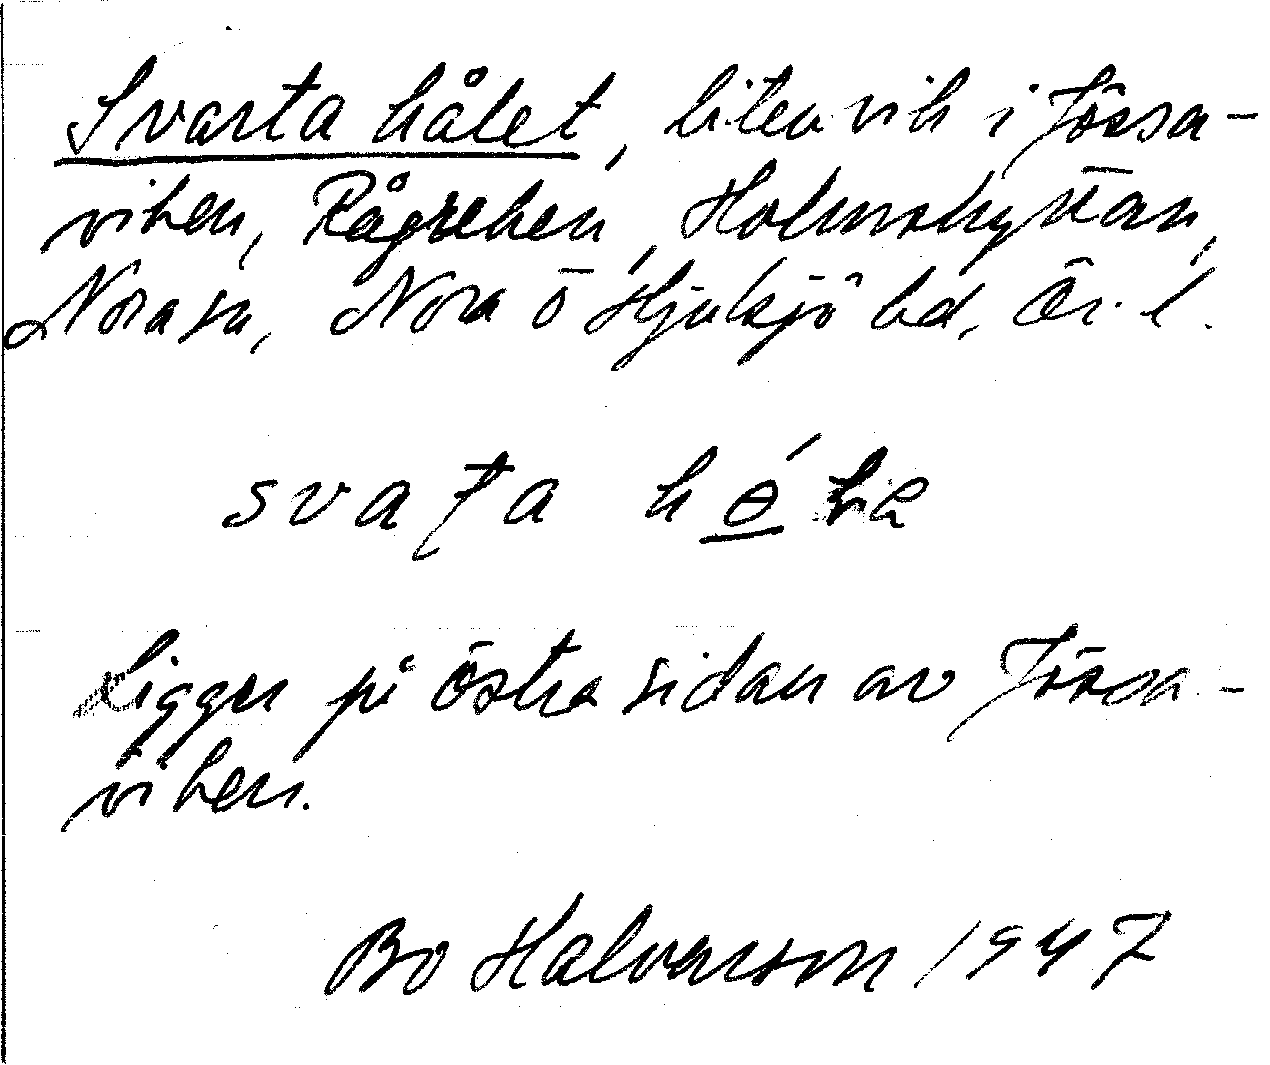 Svarta hålet, liten vik i Jössa-
viken, Rågreken, Holmshyttan,
Nora sn, Nora o Hjulsjö bd, Ör. l.
svaṭa
Ligger på östra sidan av Jössa-
viken.
Bo Halvarson 1947